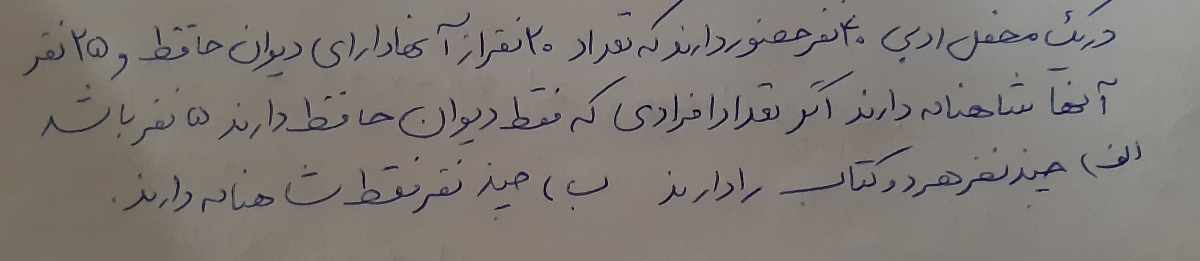 در یک محفل ادبی ۴۰ نفر حضور دارند که تعداد ۲۰ نفر از آنها دارای دیوان حافظ و ۲۵ نفر
آنها شاهنامه دارند اگر تعداد افرادی که فقط دیوان حافظ دارند ۵ نفر باشد
الف) چند نفر هر دو کتاب را دارند ب) چند نفر فقط شاهنامه دارند.